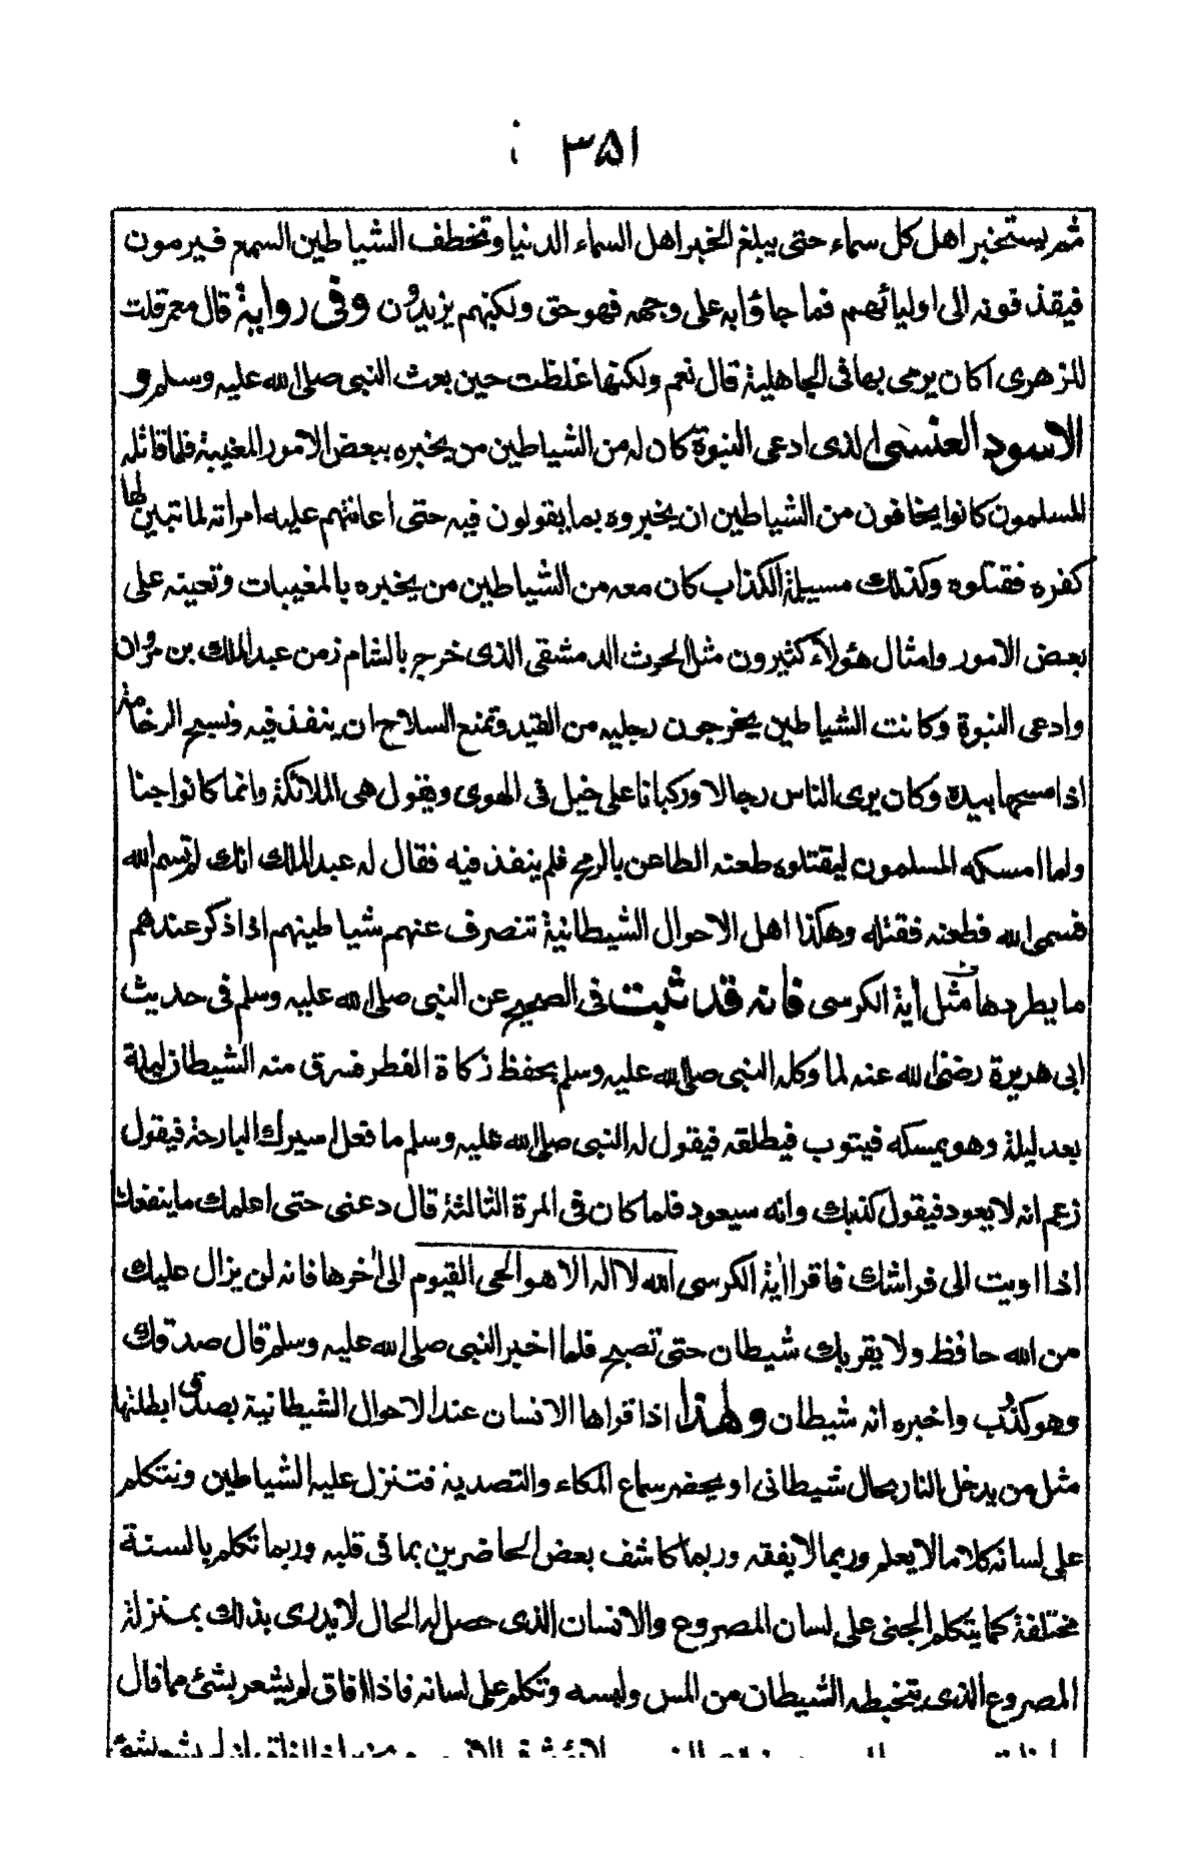 ۳۵۱
ثم يستخبر اهل كل سماء حتى يبلغ الخبر اهل السماء الدنيا وتخطف الشياطين السمع فيرمون
فيقذفونه الى اوليائهم فما جاؤا به على وجهه فهو حق ولكنهم يزيدون وفى رواية قال معمر قلت
للزهرى اكان يرمى بها فى الجاهلية قال نعم ولكنها غلظت حين بعث النبى صلى الله عليه وسلم و
الاسود العنسى الذى ادعى النبوة كان له من الشياطين من يخبره ببعض الامور المغيبة فلما قاتله
المسلمون كانوا يخافون من الشياطين ان يخبروه بما يقولون فيه حتى اعانتهم عليه امراته لما تبين لها
كفره فقتلوه وكذلك مسيلمة الكذاب كان معه من الشياطين من يخبره بالمغيبات وتعينه على
بعض الامور وامثال هئولاء كثيرون مثل الحرث الدمشقى الذى خرج بالشام زمن عبد الملك بن مروان
وادعى النبوة وكانت الشياطين يخرجون رجليه من القيد وتمنع السلاح ان ينفذ فيه وتسبح الرخامة
اذا مسحها بيده وكان يرى الناس رجالا وركبانا على خيل فى الهوى ويقول هى الملائكة وانما كانوا جنا
ولما امسكه المسلمون ليقتلوه طعنه الطاعن بالرمح فلم ينفذ فيه فقال له عبد الملك انك لم تسم الله
فسمى الله فطعنه فقتله وهكذا اهل الاحوال الشيطانية تنصرف عنهم شياطينهم اذا ذكر عندهم
ما يطردها مثل أية الكرسى فانه قد ثبت فى الصحيح عن النبى صلى الله عليه وسلم فى حديث
ابى هريرة رضى الله عنه لما وكله النبى صلى الله عليه وسلم بحفظ زكاة الفطر فسرق منه الشيطان ليلة
بعد ليلة وهو يمسكه فيتوب فيطلقه فيقول له النبى صلى الله عليه وسلم ما فعل اسيرك البارحة فيقول
زعم انه لا يعود فيقول كذبك وانه سيعود فلما كان فى المرة الثالثة قال دعنى حتى اعلمك ما ينفعك
اذا اويت الى فراشك فاقرا أية الكرسى الله لا اله الا هو الحى القيوم الى أخرها فانه لن يزال عليك
من الله حافظ ولا يقربك شيطان حتى تصبح فلما اخبر النبى صلى الله عليه وسلم قال صدقك
وهو كذوب واخبره انه شيطان ولهذا اذا قراها الانسان عند الاحوال الشيطانية بصدق ابطلتها
مثل من يدخل النار بحال شيطانى او يحضر سماع المكاء والتصدية فتنزل عليه الشياطين وتتكلم
على لسانه كلاما لا يعلم وربما لا يفقه وربما كاشف بعض الحاضرين بما فى قلبه وربما تكلم بالسنة
مختلفة كما يتكلم الجنى على لسان المصروع والانسان الذى حصل له الحال لا يدرى بذلك بمنزلة
المصروع الذى يتخبطه الشيطان من المس ولبسه وتكلم على لسانه فاذا افاق لم يشعر بشئ مما قال